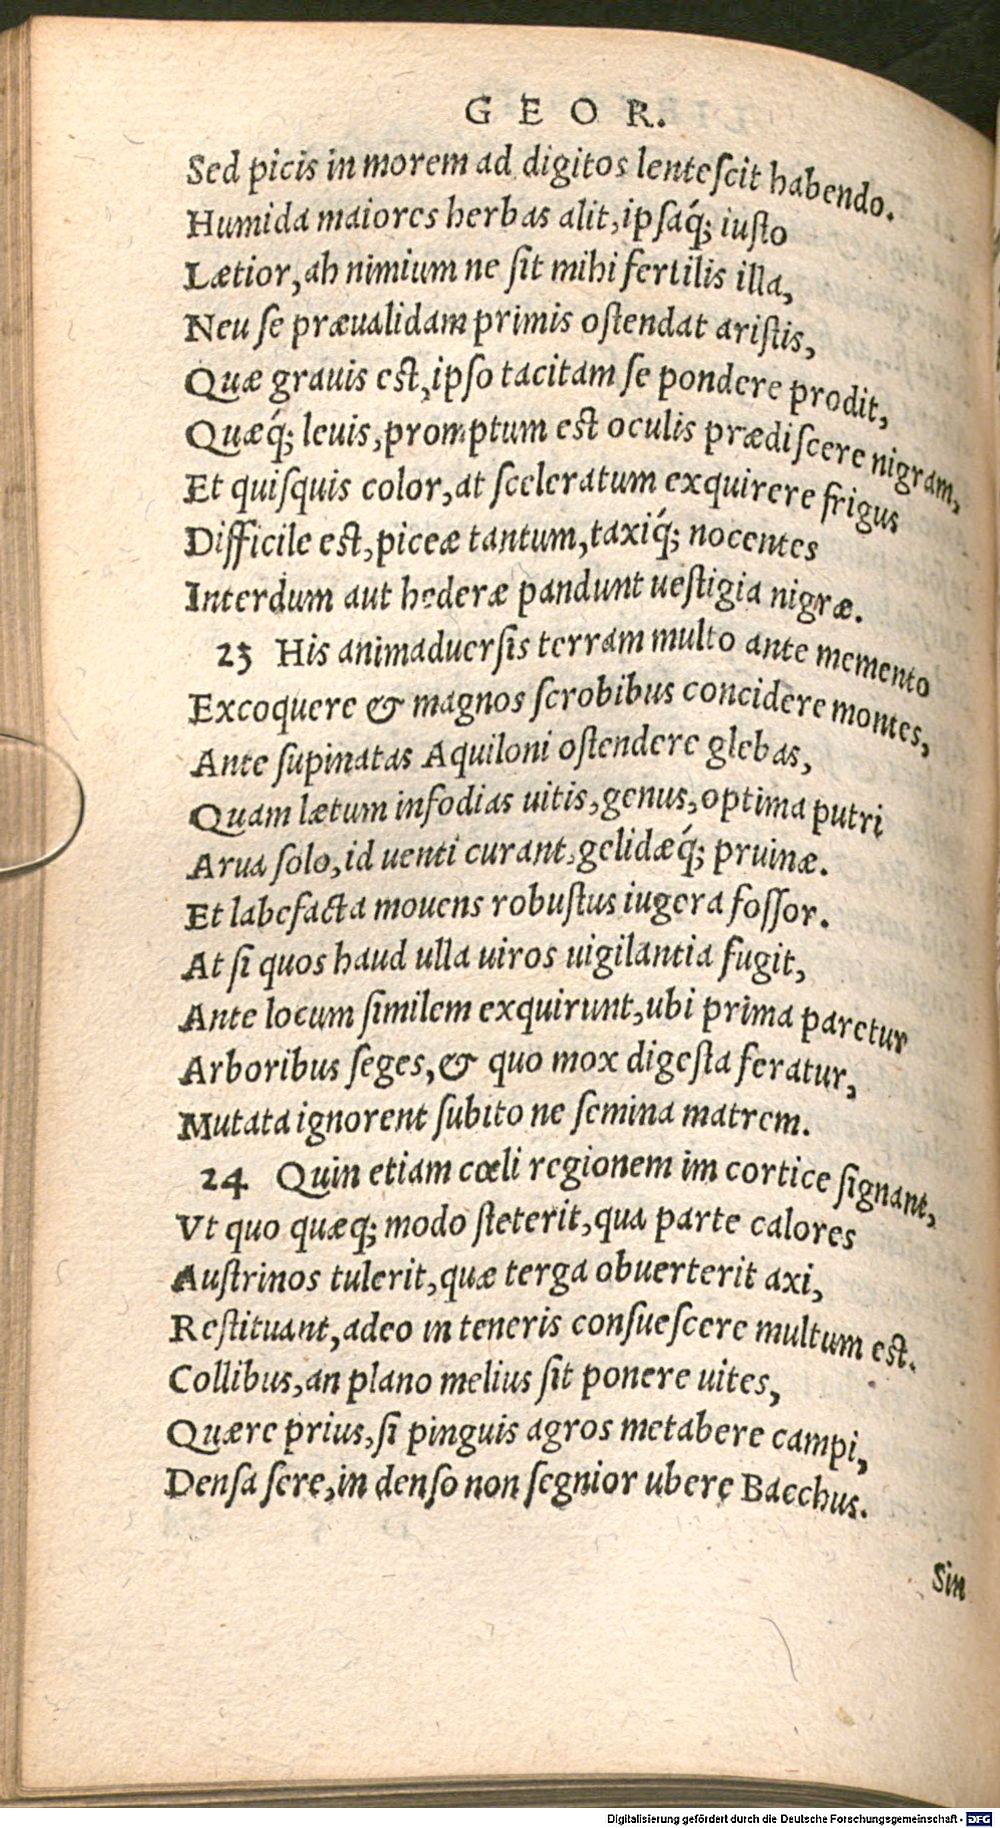 GEOR.
Sed picis in morem ad digitos lenteſcit habendo.
Humida maiores herbas alit, ipſaq́; iuſto
Lætior, ah nimium ne ſit mihi fertilis illa,
Neu ſe præualidam primis oſtendat ariſtis,
Quæ grauis eſt, ipſo tacitam ſe pondere prodit,
Quæq́; leuis, promptum eſt oculis prædiſcere nigram,
Et quiſquis color, at ſceleratum exquirere frigus
Difficile eſt, piceæ tantum, taxiq́; nocentes
Interdum aut hederæ pandunt ueſtigia nigræ.
23 His animaduerſis terram multo ante memento
Excoquere & magnos ſcrobibus concidere montes,
Ante ſupinatas Aquiloni oſtendere glebas,
Quam lætum infodias uitis, genus, optima putri
Arua ſolo, id uenti curant, gelidæq́; pruinæ.
Et labefacta mouens robuſtus iugera foſſor.
At ſi quos haud ulla uiros uigilantia fugit,
Ante locum ſimilem exquirunt, ubi prima paretur
Arboribus ſeges, & quo mox digeſta feratur,
Mutata ignorent ſubito ne ſemina matrem.
24 Quin etiam cœli regionem im cortice ſignant,
Vt quo quæq; modo ſteterit, qua parte calores
Auſtrinos tulerit, quæ terga obuerterit axi,
Reſtituant, adeo in teneris conſueſcere multum eſt.
Collibus, an plano melius ſit ponere uites,
Quære prius, ſi pinguis agros metabere campi,
Denſa ſere, in denſo non ſegnior ubere Bacchus.
Sin
Digitalisierung gefördert durch die Deutsche Forschungsgemeinschaft - DFG